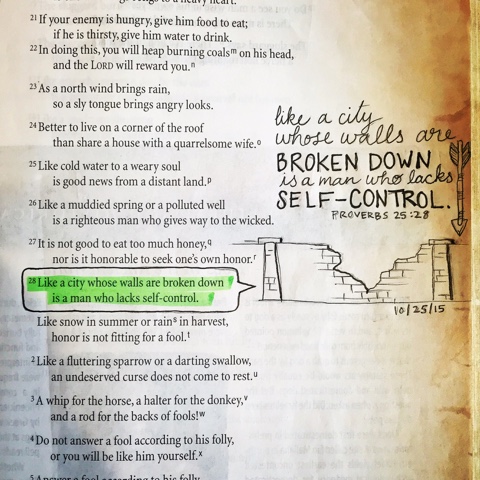 to a heavy heart.
21 If your enemy is hungry, give him food to eat;
if he is thirsty, give him water to drink.
22 In doing this, you will heap burning coals m on his head,
and the LORD will reward you. n
23 As a north wind brings rain,
so a sly tongue brings angry looks.
24 Better to live on a corner of the roof
than share a house with a quarrelsome wife. o
25 Like cold water to a weary soul
is good news from a distant land. p
26 Like a muddied spring or a polluted well
is a righteous man who gives way to the wicked.
27 It is not good to eat too much honey, q
nor is it honorable to seek one's own honor. r
28 Like a city whose walls are broken down
is a man who lacks self-control.
Like snow in summer or rain s in harvest,
honor is not fitting for a fool. t
2 Like a fluttering sparrow or a darting swallow,
an undeserved curse does not come to rest. u
3 A whip for the horse, a halter for the donkey, v
and a rod for the backs of fools! w
4 Do not answer a fool according to his folly,
or you will be like him yourself. x
5 Answer a fool according to his folly
like a city
whose walls are
BROKEN DOWN
is a man who lacks
SELF-CONTROL.
PROVERBS 25:28
10/25/15